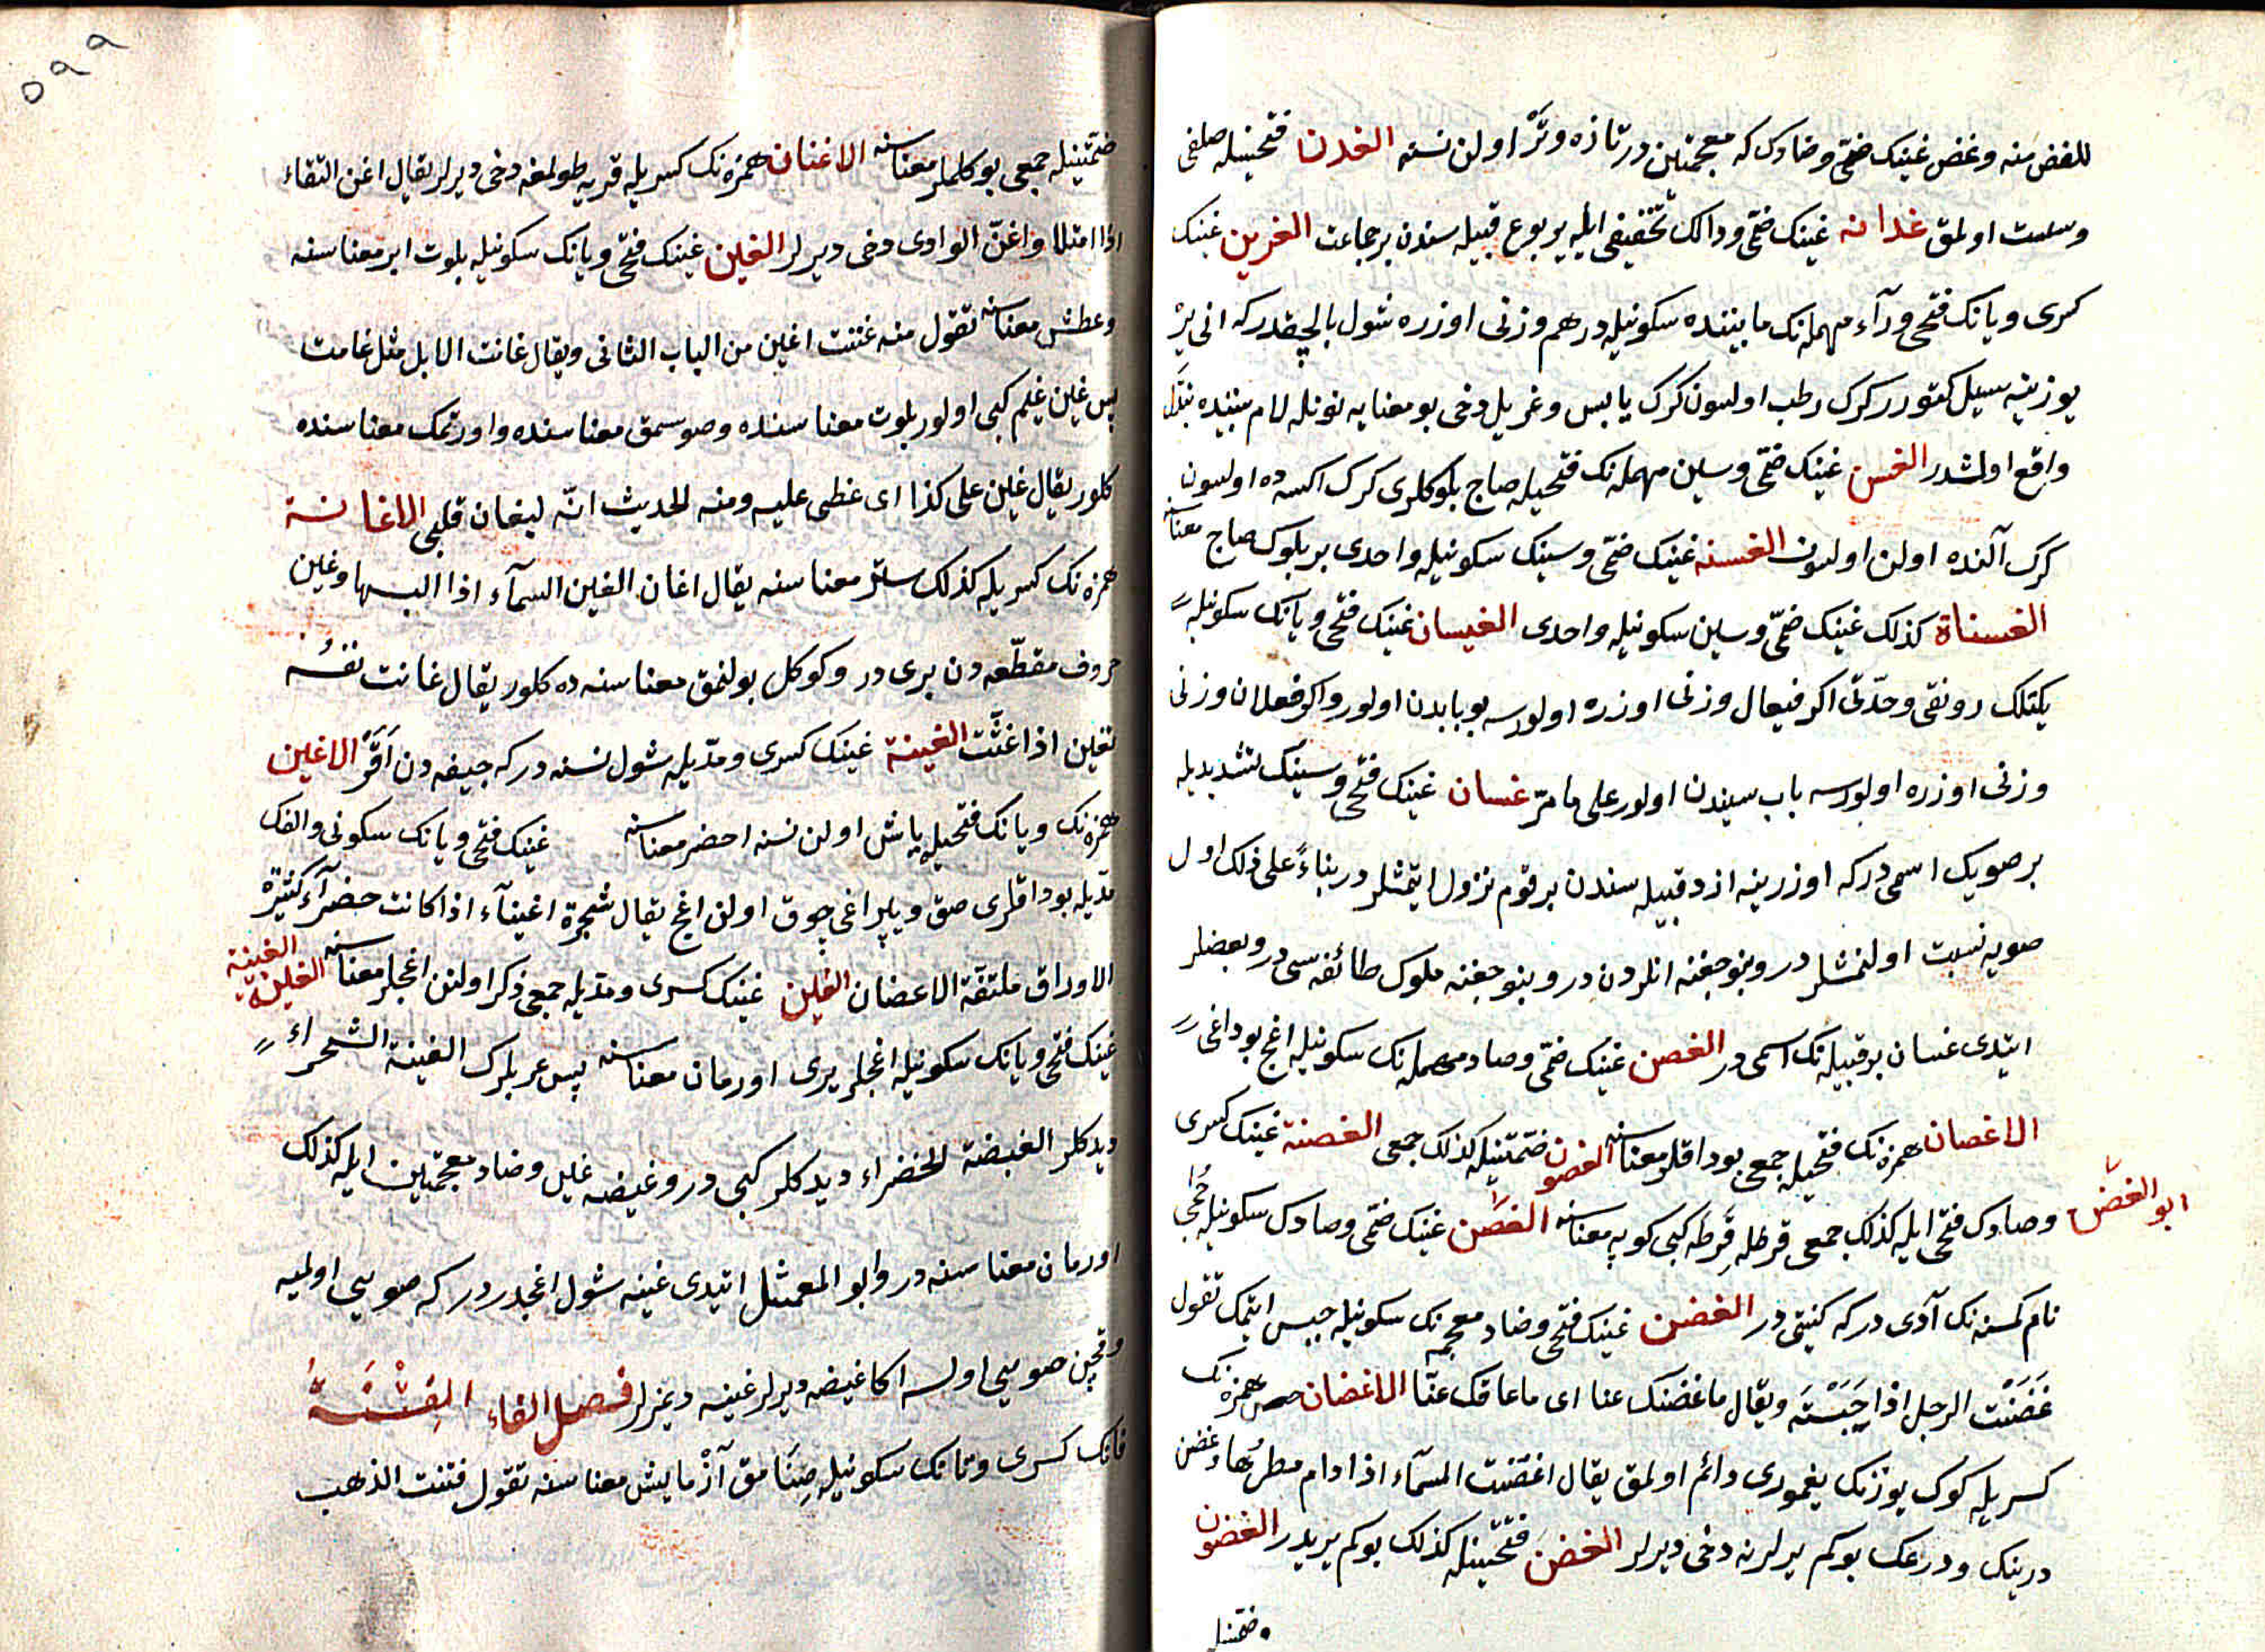 للغض منه وغض غينك ضمّى وضادك كه معجمتين در تازه وتر اولن نسنه الغدن فتحتينله صلفى
وسست اولمق غدانه غينك ضمّى ودالك تخفيفى ايله يربوع قبيله سندن بر جماعت الغرين غينك
كسرى ويانك فتحى ورآء مهمله نك مابيننده سكونيله درهم وزنى اوزره شول بالچقدركه انى ير
يوزينه سيل كتورر كرك رطب اولسون كرك يابس وغريل دخى بو معنايه نونله لام بيننده تبدّل
واقع اولمشدر الغسن غينك ضمّى وسين مهمله نك فتحيله صاج بلوكلرى كرك اكسه ده اولسون
كرك آلنده اولن اولسون الغسنه غينك ضمّى وسينك سكونيله واحدى بر بلوك صاج معناسنه
الغسناة كذلك غينك ضمّى وسين سكونيله واحدى الغيسان غينك فتحى ويانك سكونيله
يكتلك رونقى وحدّتى اكر فيعال وزنى اوزره اولورسه بو بابدن اولور واكر فعلان وزنى
وزنى اوزره اولورسه باب سيندن اولور على ما مرّ غسان غينك فتحى وسينك تشديديله
بر صويك اسمى دركه اوزرينه ازد قبيله سندن بر قوم نزول ايتمشلر در بناءً على ذلك اول
صويه نسبت اولنمشلر در وبنو جفنه انلردن در وبنو جفنه ملوك طائفه سى در وبعضلر
ايتدى غسان بر قبيله نك اسمى در الغصن غينك ضمّى وصاد مهمله نك سكونيله اغج بوداغى
الاغصان همزه نك فتحيله جمعى بوداقلر معناسنه الغصون ضمّتينله كذلك جمعى الغصنة غينك كسرى
وصادك فتحى ايله كذلك جمعى قرطله قرطه كبى كوپه معناسنه الغصن غينك ضمّى وصادك سكونيله جُحى
ابو الغصن
نام كمسنه نك آدى دركه كنيتى در الغضن غينك فتحى وضاد معجمه نك سكونيله حبس ايتمك تقول
غَضَنْت الرجل اذا حَبَسْتَه ويقال ما غضنك عنا اى ما عاقك عنّا الاغضان همزه نك
كسريله كوك يوزنك يغمورى دائم اولمق يقال اغضنت السمآء اذا دام مطرها وغضن
درينك ودرعك بوكم يرلرنه دخى ديرلر الغضن فتحتينله كذلك بوكم يريدر الغضون
ضمّتينله
٥٩٩
ضمّتينله جمعى بوكلملر معناسنه الاغنان همزه نك كسريله قريه طولمغه دخى ديرلر يقال اغن السقاء
اذا امتلا واغنّ الوادى دخى ديرلر الغين غينك فتحى ويانك سكونيله بلوت ابر معناسنه
وعطش معناسنه تقول منه غنت اغين من الباب الثانى ويقال غانت الابل مثل غامت
پس غين غيم كبى اولور بلوت معناسنده وصوسمق معناسنده واورتمك معناسنده
كلور يقال غين على كذا اى غطى عليه ومنه الحديث انّه ليغان قلبى الاغانة
همزه نك كسريله كذلك ستر معناسنه يقال اغان الغين السمآء اذا البسها وغين
حروف مقطّعه دن برى در وكوكل بولنمق معناسنه ده كلور يقال غانت نفسُه
تغين اذا غثت الغينة غينك كسرى ومدّيله شول نسنه دركه جيفه دن آقر الاغين
همزه نك ويانك فتحيله ياشل اولن نسنه اخضر معناسنه غينك فتحى ويانك سكونى والفك
مدّيله بوداقلرى صق وپيراغى چوق اولن اغج يقال شجرة اغينآء اذا كانت خضرآء كثيرة
الاوراق ملتفّة الاغصان الغين غينك كسرى ومدّيله جمعى ذكر اولنن اغجلر معناسنه الغينة
الغينة
غينك فتحى ويانك سكونيله اغجلر يرى اورمان معناسنه پس عربلرك الغينة الشجراء
ديدكلر الغيضة الخضراء ديدكلر كبى در وغيضه غين وضاد معجمتين ايله كذلك
اورمان معناسنه در وابو العميثل ايتدى غينه شول اغجلردر كه صويى اولميه
وقچن صويى اولسه اكا غيضه ديرلر غينه ديمزلر فصل الفاء الفِتْنَةُ
فانك كسرى وتانك سكونيله صنامق آزمايش معناسنه تقول فتنت الذهب